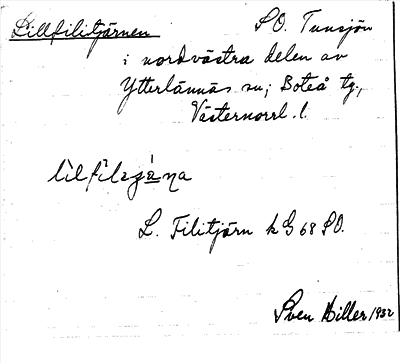 Lillfilitjärnen SO. Tunsjön
i nordvästra delen av
Ytterlännäs sn; Boteå tg.,
Västernorrl. l.
lìlfìlɩgä́ṇa
L. Filitjärn k G 68 SO.
Sven Hiller 1932